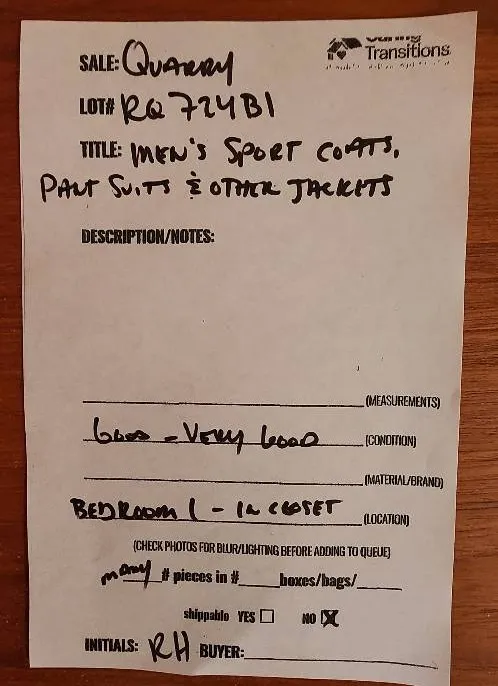 Caring
Transitions
SALE: QUARRY
LOT# RQ724B1
TITLE: MEN'S SPORT COATS,
PANT SUITS & OTHER JACKETS
DESCRIPTION/NOTES:
(MEASUREMENTS)
GOOD - VERY GOOD (CONDITION)
(MATERIAL/BRAND)
BEDROOM 1 - IN CLOSET (LOCATION)
(CHECK PHOTOS FOR BLUR/LIGHTING BEFORE ADDING TO QUEUE)
many # pieces in #____boxes/bags/____
shippable YES ☐ NO ☒
INITIALS: RH BUYER: